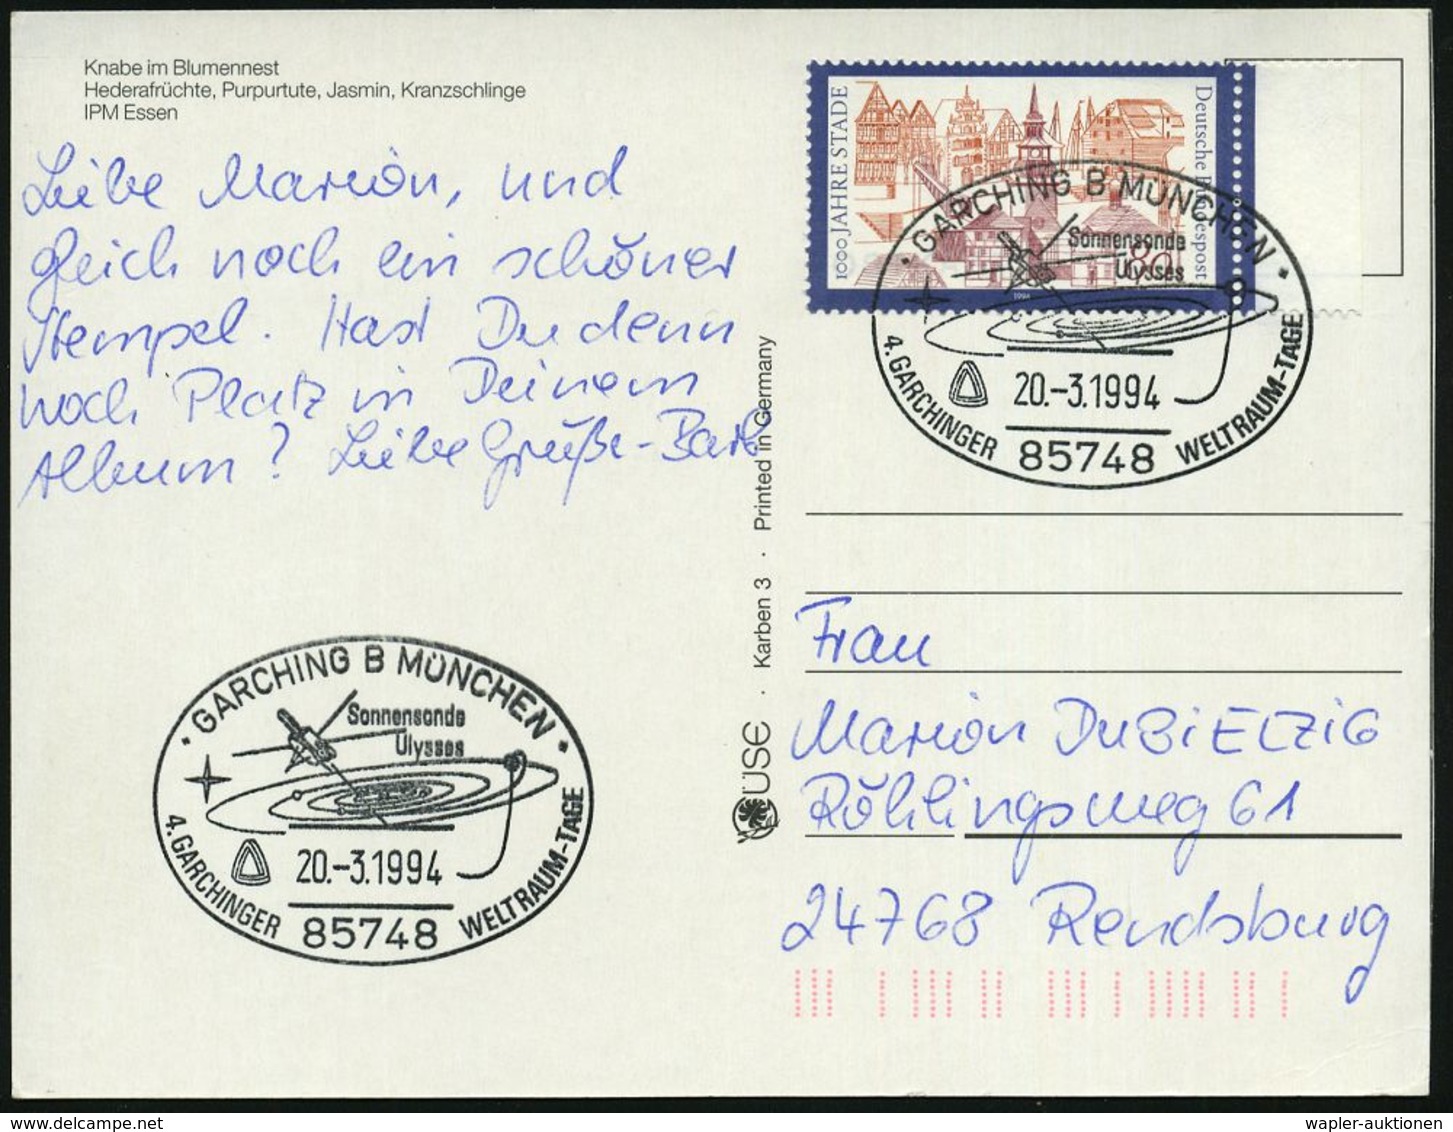 Knabe im Blumennest
Hederafrüchte, Purpurtute, Jasmin, Kranzschlinge
IPM Essen
Liebe Marion, und
gleich noch ein schöner
Stempel. Hast Du denn
noch Platz in Deinem
Album? Liebe Grüße - Barb
1000 JAHRE STADE
Deutsche Bundespost
80
1994
· GARCHING B MÜNCHEN ·
Sonnensonde
Ulysses
20.-3.1994
85748
4. GARCHINGER WELTRAUM-TAGE
ÜSE · Karben 3 · Printed in Germany
Frau
Marion DUBIELZIG
Röhlingsweg 61
24768 Rendsburg
· GARCHING B MÜNCHEN ·
Sonnensonde
Ulysses
20.-3.1994
85748
4. GARCHINGER WELTRAUM-TAGE
wapler-auktionen